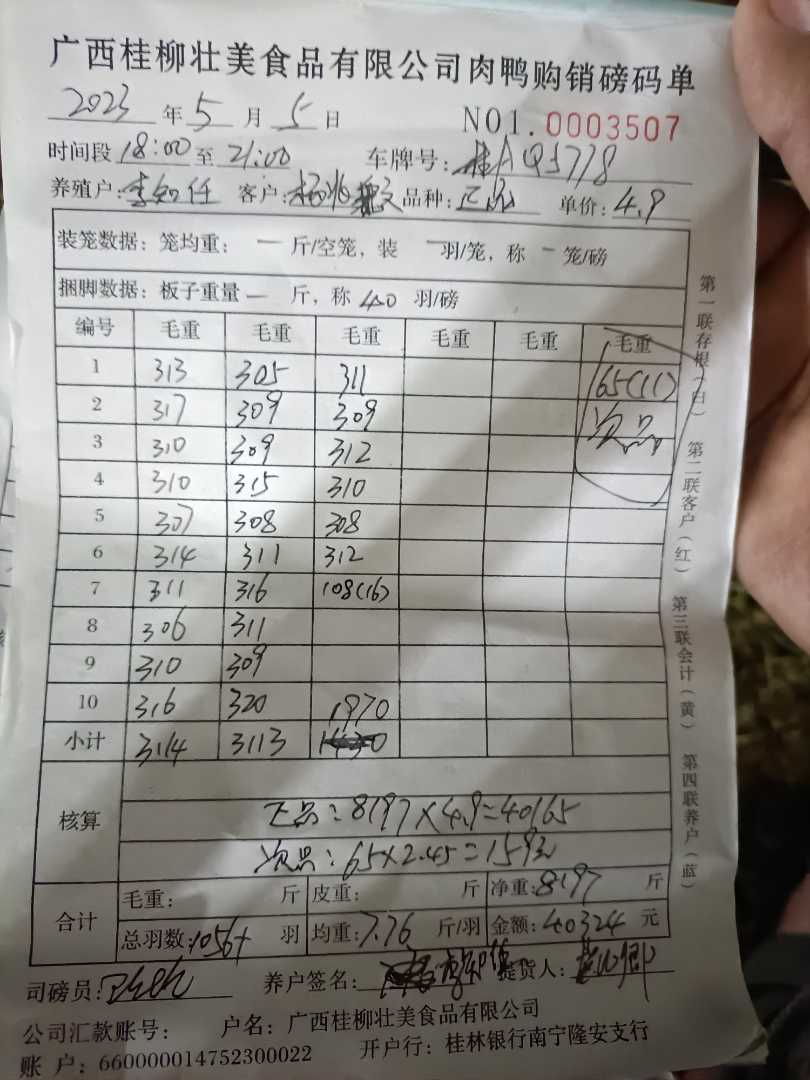 广西桂柳壮美食品有限公司肉鸭购销磅码单
2023 年 5 月 5 日 NO1.0003507
时间段 18:00 至 21:00 车牌号: 桂A Q5778
养殖户: 李知任 客户: 杨兆 品种: 正品 单价: 4.9
装笼数据: 笼均重: 一 斤/空笼, 装 一 羽/笼, 称 一 笼/磅
捆脚数据: 板子重量 一 斤, 称 40 羽/磅
编号 毛重 毛重 毛重 毛重 毛重 毛重
1 313 305 311 65(11)
2 317 309 309 次品
3 310 309 312
4 310 315 310
5 307 308 308
6 314 311 312
7 311 316 108(16)
8 306 311
9 310 309
10 316 320 1970
小计 3114 3113
核算
正品: 8197×4.9=40165
次品: 65×2.45=159元
合计 毛重: 斤 皮重: 斤 净重: 8197 斤
总羽数: 1056 羽 均重: 7.76 斤/羽 金额: 40324 元
司磅员: 养户签名: 提货人:
公司汇款账号: 户名: 广西桂柳壮美食品有限公司
账 户: 660000014752300022 开户行: 桂林银行南宁隆安支行
第一联存根(白) 第二联客户(红) 第三联会计(黄) 第四联养户(蓝)